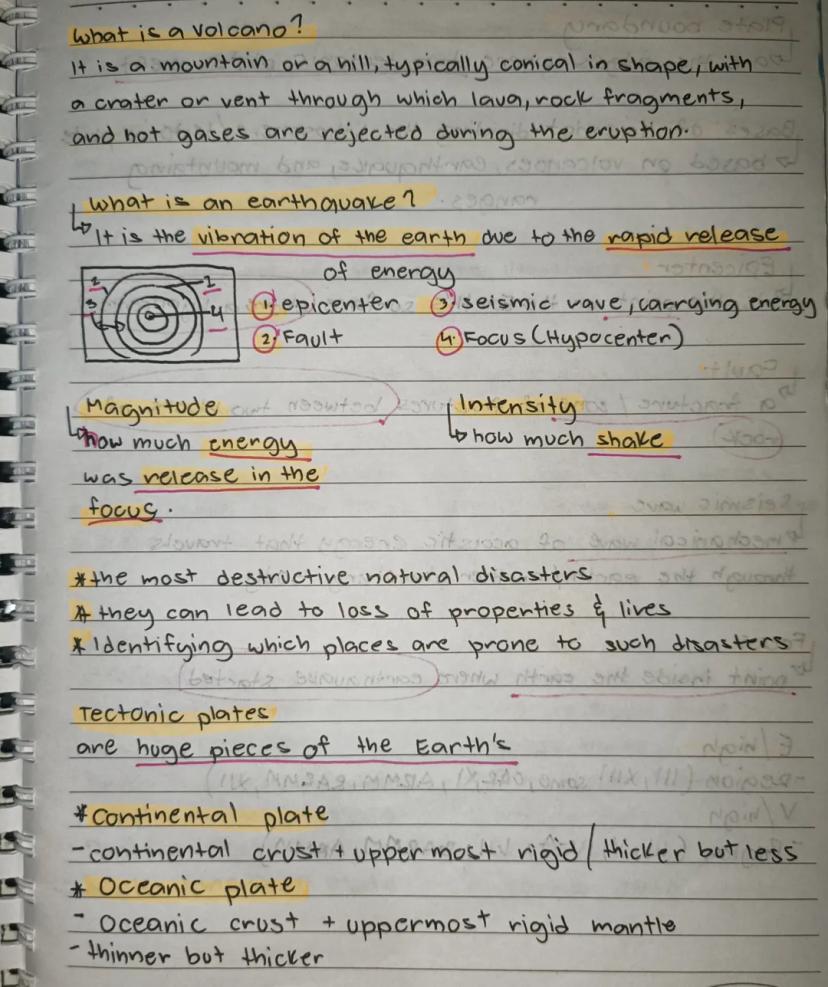 What is a volcano?
It is a mountain or a hill, typically conical in shape, with
a crater or vent through which lava, rock fragments,
and hot gases are rejected during the eruption.
What is an earthquake?
↳ It is the vibration of the earth due to the rapid release
of energy
2 1
3 4
1. epicenter 3. seismic wave, carrying energy
2. Fault 4. Focus (Hypocenter)
Magnitude Intensity
↳ how much energy ↳ how much shake
was release in the
focus.
* the most destructive natural disasters
* they can lead to loss of properties & lives
* Identifying which places are prone to such disasters
Tectonic plates
are huge pieces of the Earth's
* Continental plate
- continental crust + upper most rigid / thicker but less
* Oceanic plate
- Oceanic crust + uppermost rigid mantle
- thinner but thicker